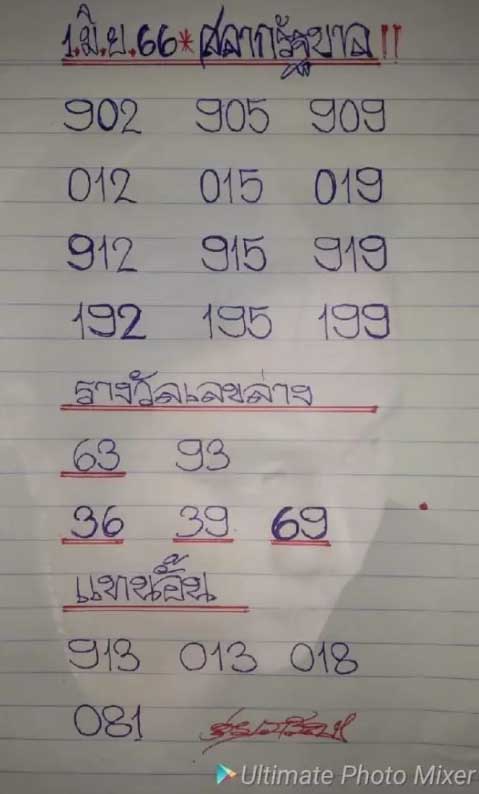 1.มิ.ย.66* สลากรัฐบาล!!
902 905 909
012 015 019
912 915 919
192 195 199
รางวัลเลขล่าง
63 93
36 39 69
แทนอั้น
913 013 018
081
Ultimate Photo Mixer